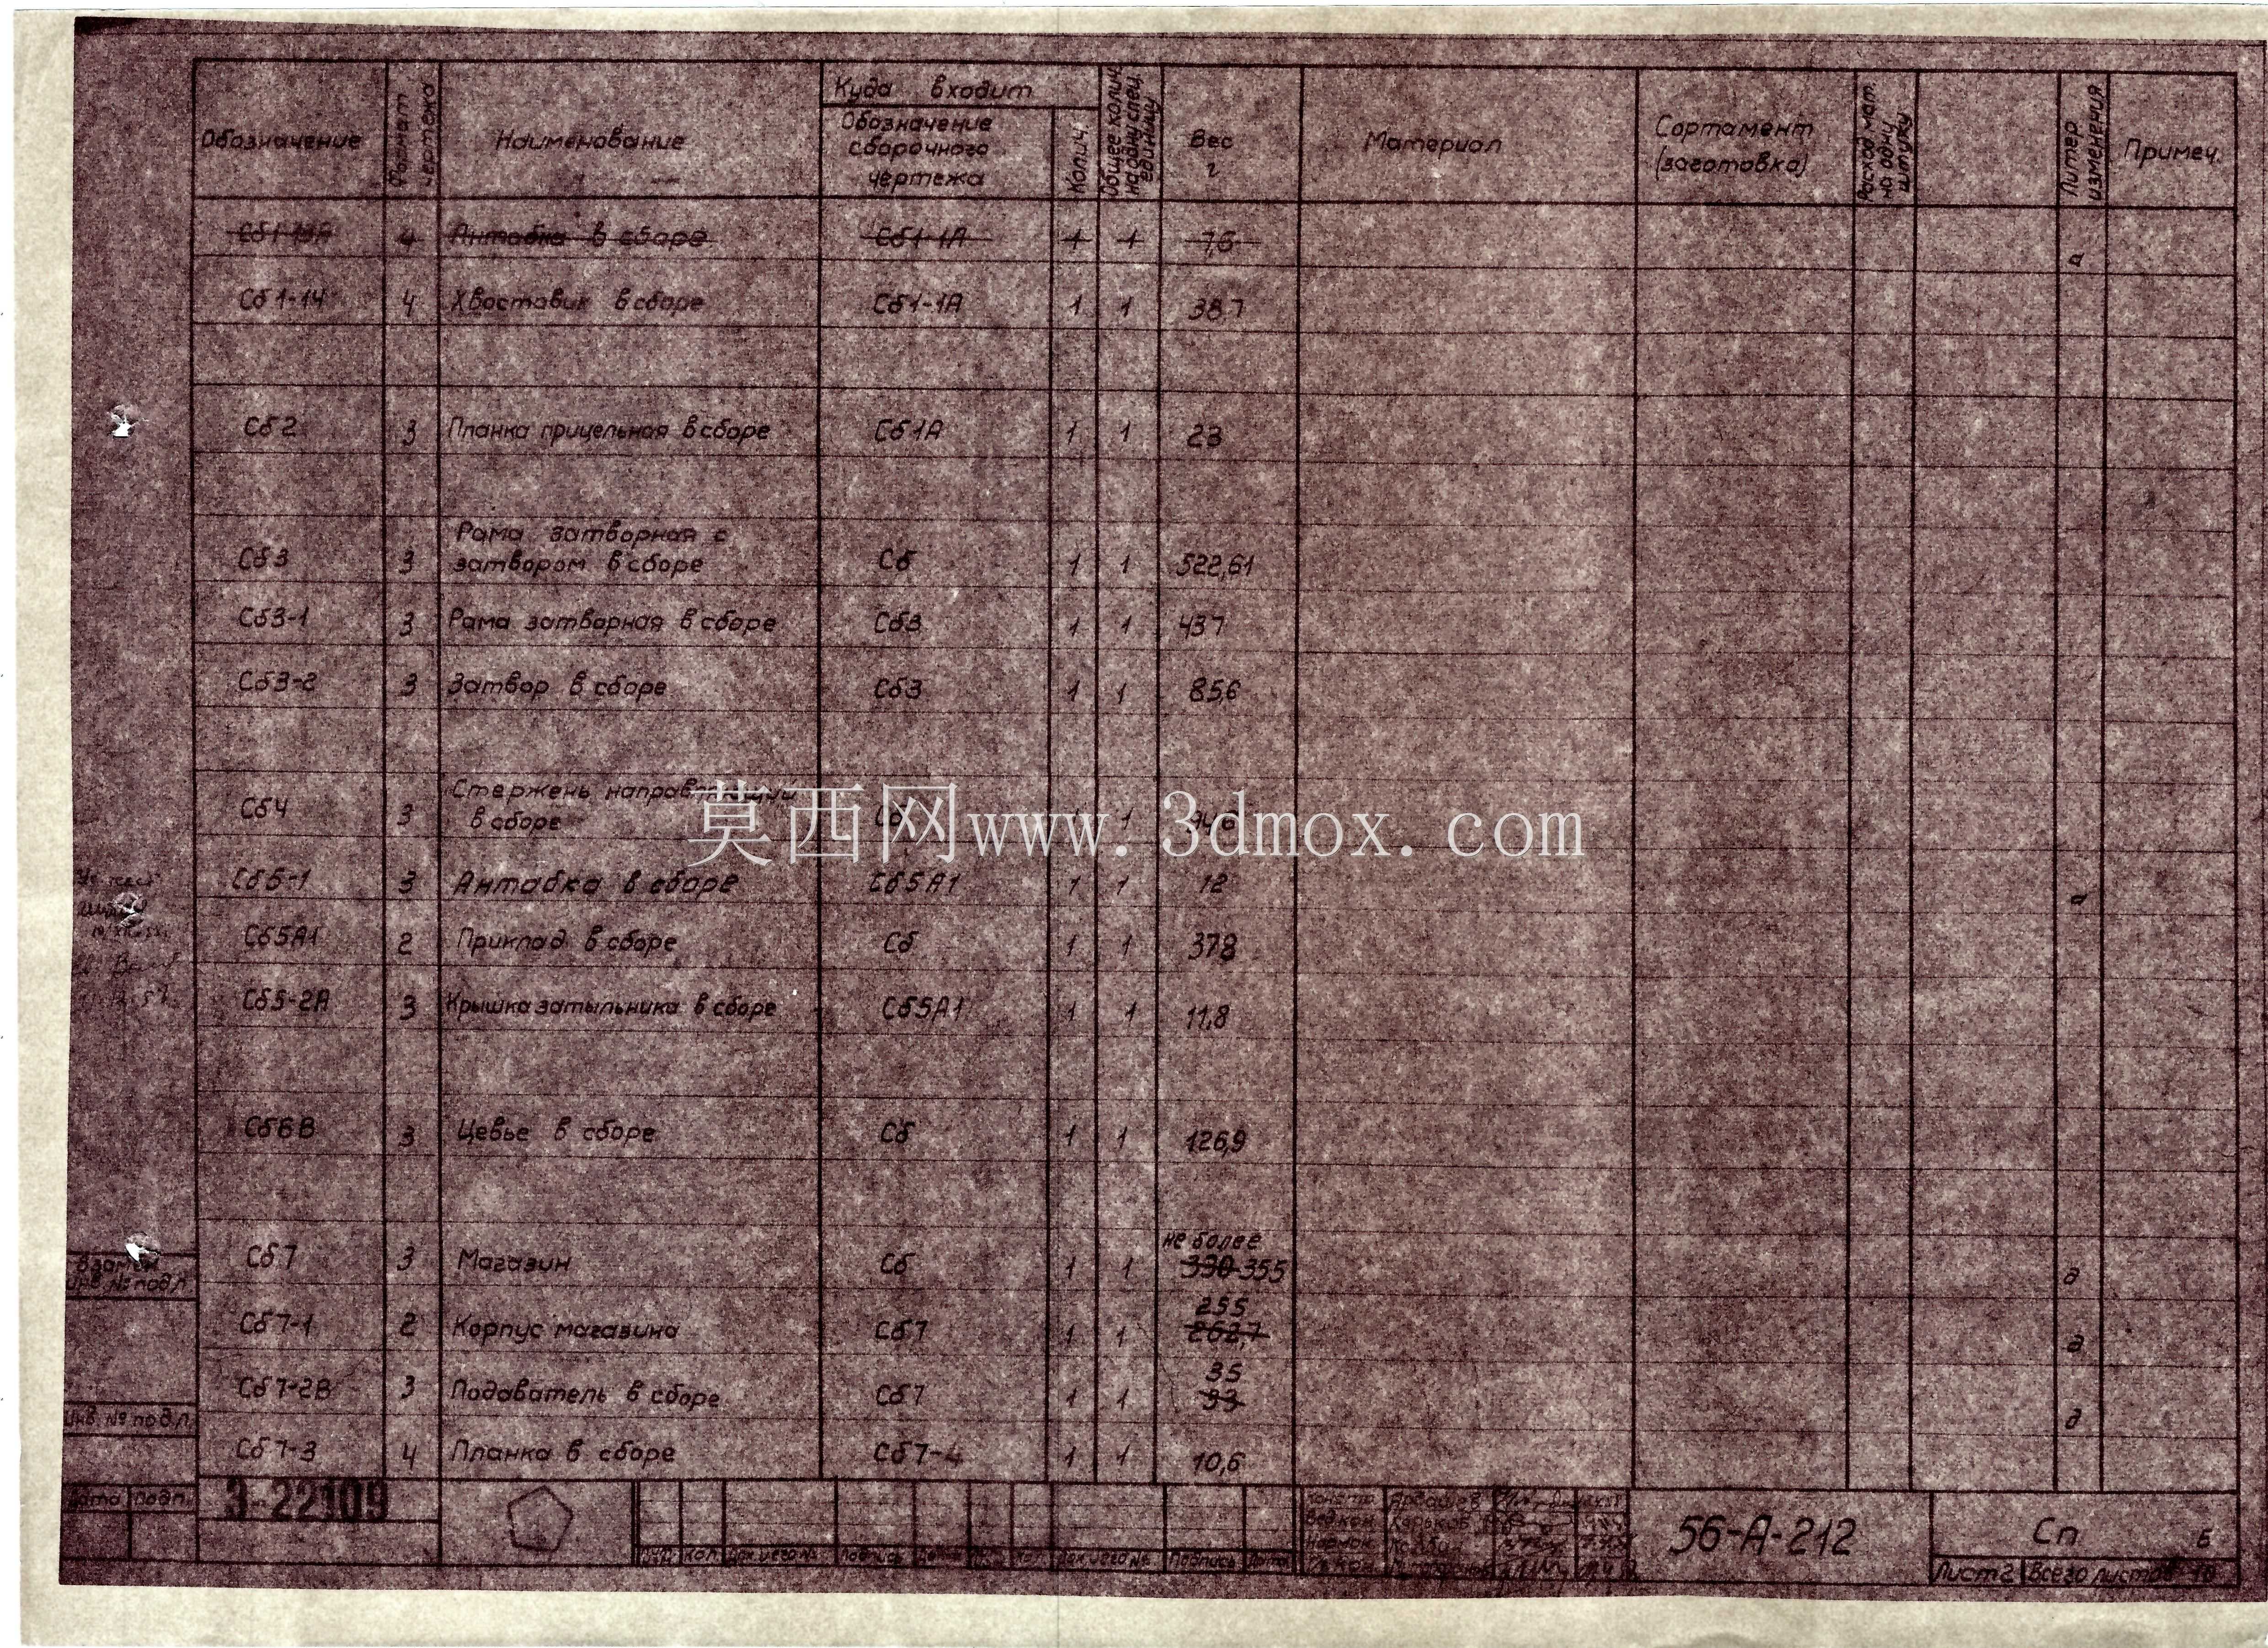 Обозначение
Формат чертежа
Наименование
Куда входит
Обозначение сборочного чертежа
Колич.
Общее колич. на одну спец. единицу
Вес г
Материал
Сортамент (заготовка)
Расход мат. на одну штуку
Литер изменения
Примеч.
4 Антабка в сборе Сб1-1А 1 1 7,6 а
Сб1-14 4 Хвостовик в сборе Сб1-1А 1 1 38,7
Сб2 3 Планка прицельная в сборе Сб1А 1 1 23
Рама затворная с
Сб3 3 затвором в сборе Сб 1 1 522,61
Сб3-1 3 Рама затворная в сборе Сб3 1 1 437
Сб3-2 3 Затвор в сборе Сб3 1 1 85,6
Стержень направляющий
Сб4 3 в сборе 1
3 Антабка в сборе Сб5А1 1 1 12 а
Сб5А1 2 Приклад в сборе Сб 1 1 378
Сб5-2А 3 Крышка затыльника в сборе Сб5А1 1 1 11,8
Сб6В 3 Цевье в сборе Сб 1 1 126,9
не более
Сб7 3 Магазин Сб 1 1 330 355 д
255
Сб7-1 2 Корпус магазина Сб7 1 1 262,7 д
35
Сб7-2В 3 Подаватель в сборе Сб7 1 1 33 д
Сб7-3 4 Планка в сборе Сб7-4 1 1 10,6
莫西网www.3dmox.com
Взамен
инв. № подл.
Инв. № подл.
Дата Подп.
3-22109
Кол. Подпись Дата Подпись Дата
56-А-212
Сп
Б
Лист 2 Всего листов 10